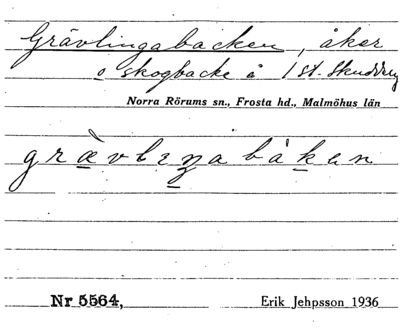 Grävlingabacken, åker
o skogbacke å 1 st. Skuddrup
Norra Rörums sn., Frosta hd., Malmöhus län
grævleŋabàken
Nr 5564,
Erik Jehpsson 1936